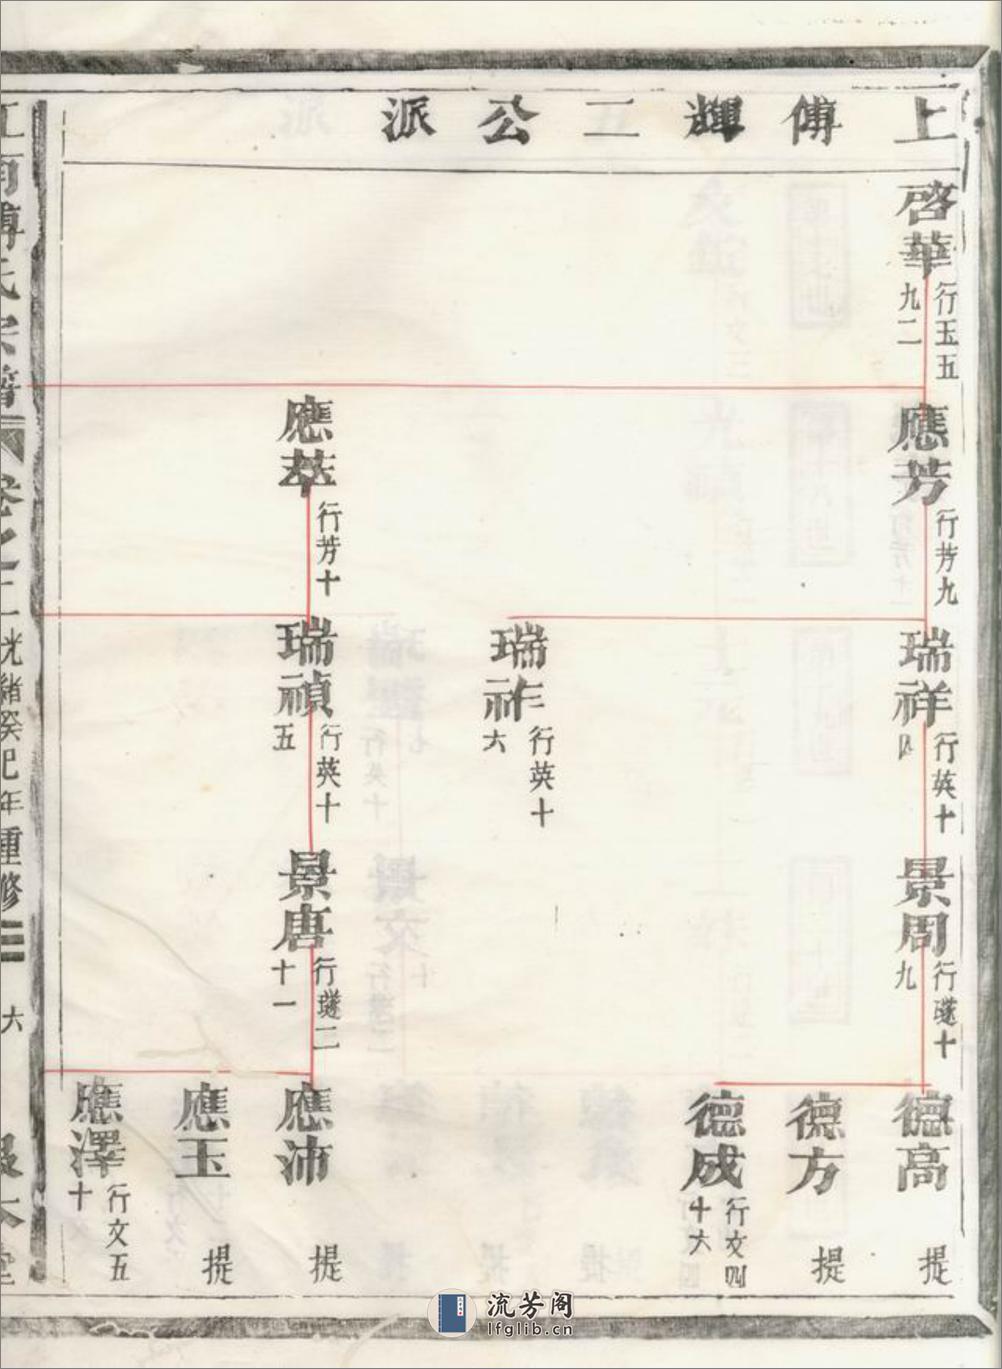 上傅輝二公派
啓華
行玉五
九二
應芳
行芳九
應苹
行芳十
瑞祥
行英十
四
瑞祚
行英十
六
瑞禎
行英十
五
景周
行璲十
九
景唐
行璲二
十一
德高
提
德方
提
德成
行文四
十六
應沛
提
應玉
提
應澤
行文五
十
傅氏宗譜
卷之二
光緒癸巳年重修
六
本堂
流芳阁
lfglib.cn